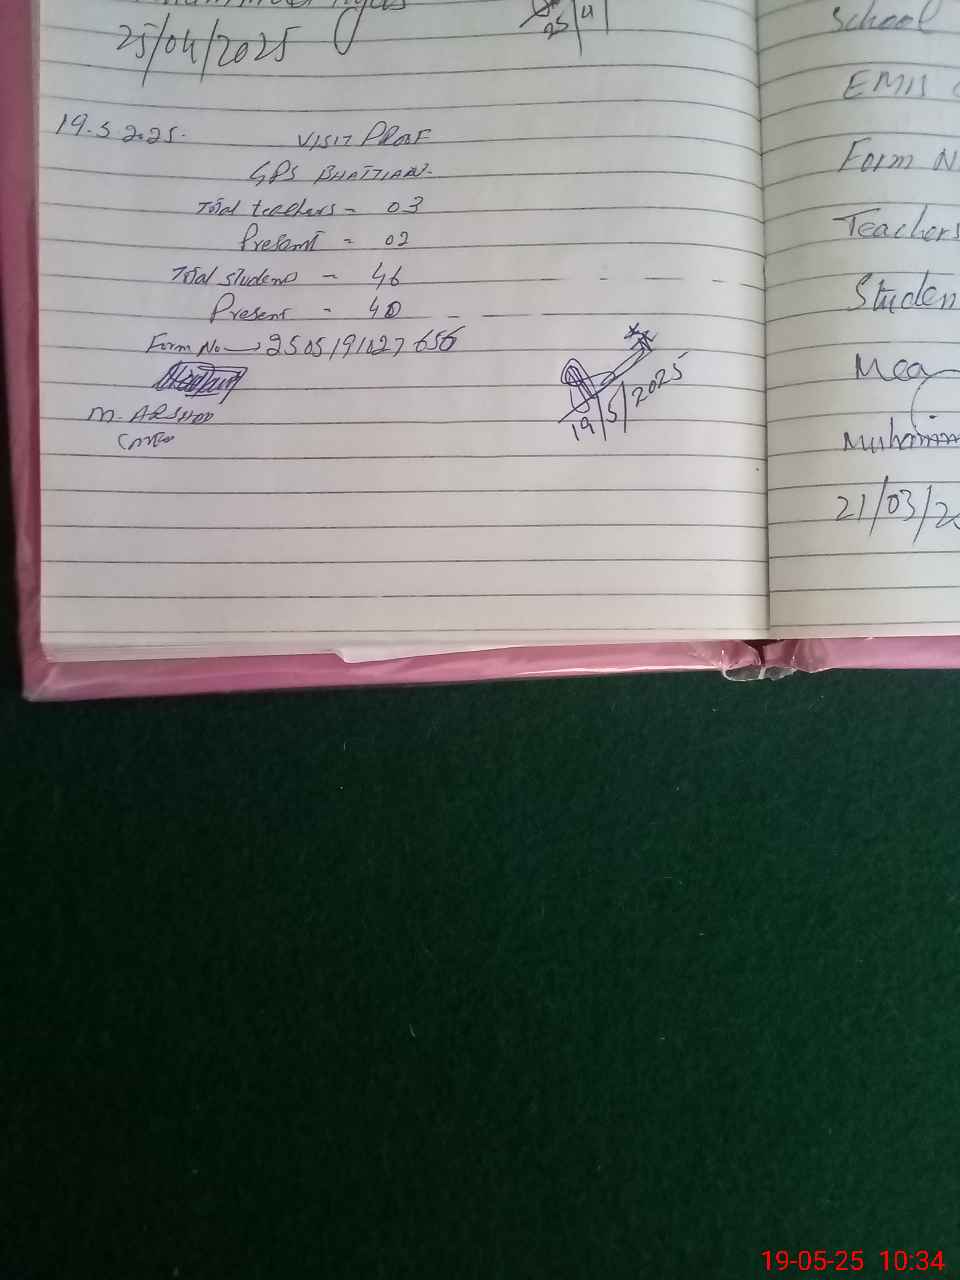 25/04/2025
25/4
19.5 2025.
VISIT PROOF
GPS BHATTIAN.
Total teachers = 03
Present = 02
Total students - 46
Present - 40
Form No → 2505191027656
M. ARSHAD
19/5/2025
School
EMIS
Form N
Teachers
Studen
Mea
Muhamm
21/03/20
19-05-25 10:34